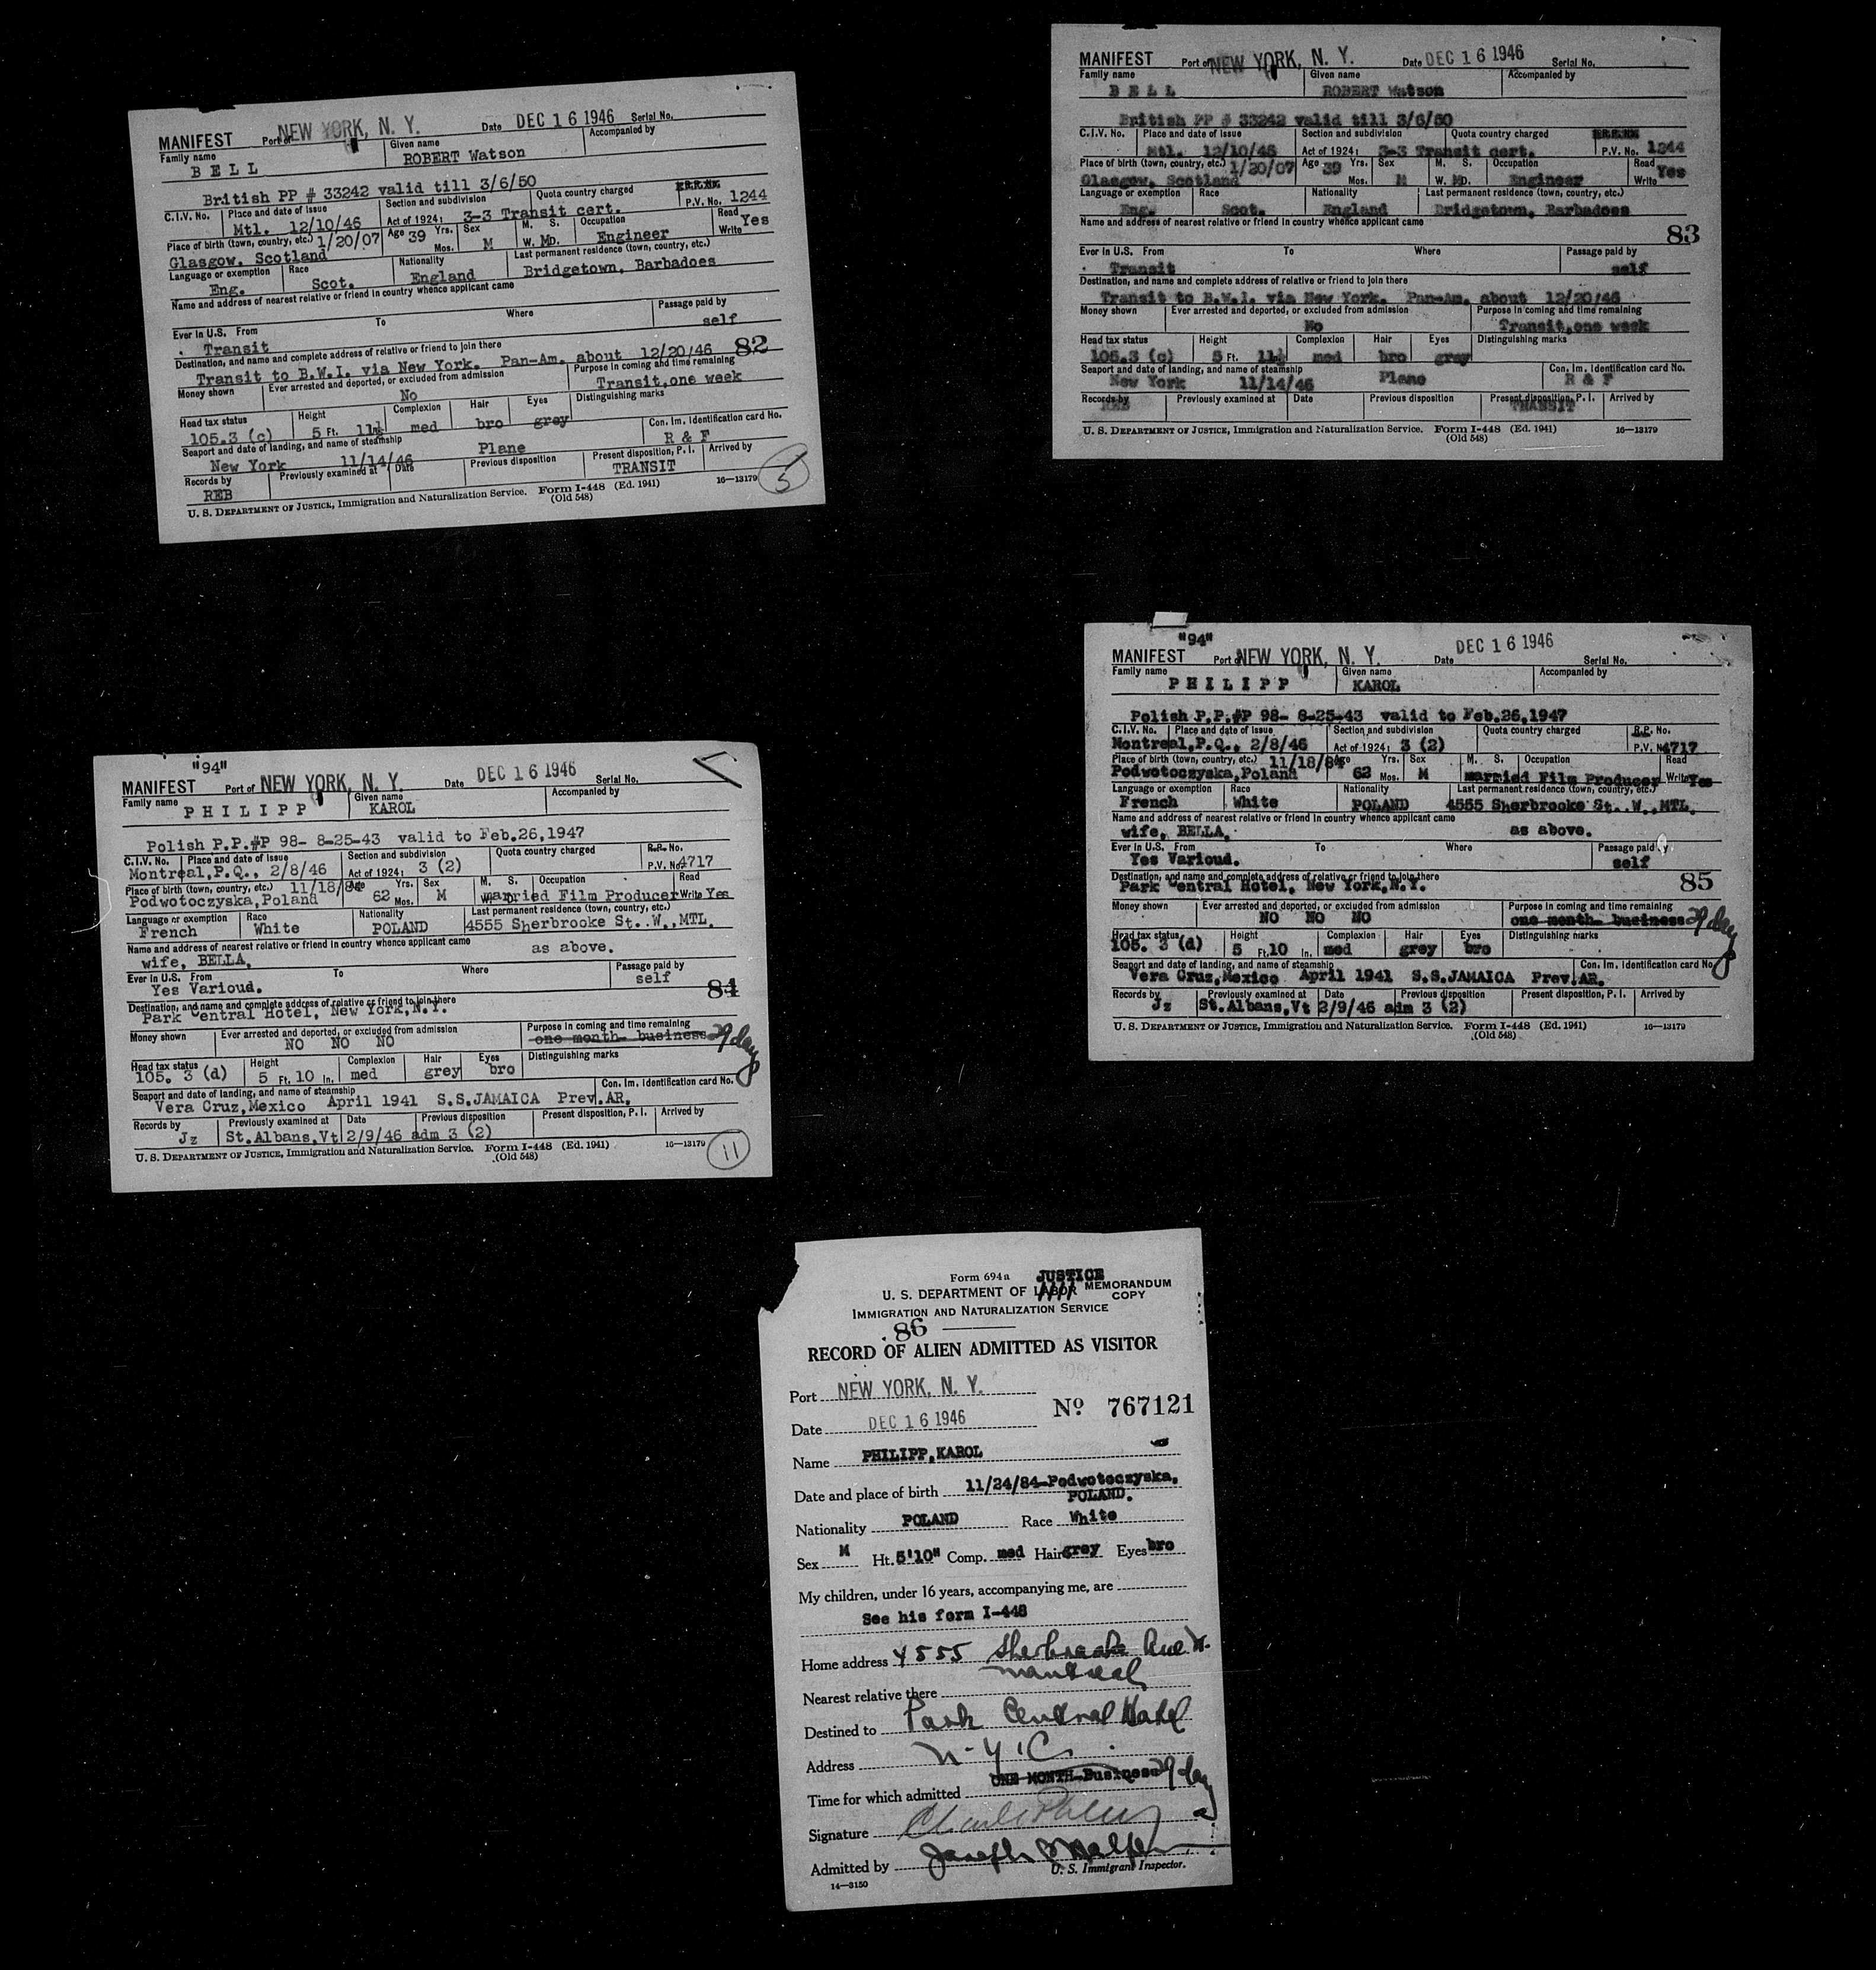 MANIFEST Port of NEW YORK, N. Y. Date DEC 16 1946 Serial No.
Family name Given name Accompanied by
BELL ROBERT Watson
British PP # 33242 valid till 3/6/50
C.I.V. No. Place and date of issue Section and subdivision Quota country charged
Mtl. 12/10/46 Act of 1924: 3-3 Transit cert. P.V. No. 1244
Place of birth (town, country, etc.) 1/20/07 Age 39 Yrs. Mos. Sex M M. S. W. MD. Occupation Read Write Yes
Glasgow, Scotland Engineer
Language or exemption Race Nationality Last permanent residence (town, country, etc.)
Eng. Scot. England Bridgetown, Barbadoes
Name and address of nearest relative or friend in country whence applicant came
Ever in U.S. From To Where Passage paid by
Transit self
Destination, and name and complete address of relative or friend to join there
Transit to B.W.I. via New York. Pan-Am. about 12/20/46 82
Money shown Ever arrested and deported, or excluded from admission Purpose in coming and time remaining
No Transit,one week
Head tax status Height Complexion Hair Eyes Distinguishing marks
105.3 (c) 5 Ft. 11½ med bro grey
Seaport and date of landing, and name of steamship Con. Im. Identification card No.
New York 11/14/46 Plane R & F
Records by Previously examined at Date Previous disposition Present disposition, P. I. Arrived by
REB TRANSIT
U. S. DEPARTMENT OF JUSTICE, Immigration and Naturalization Service. Form I-448 (Ed. 1941) 16—13179
(Old 548)
5
MANIFEST Port of NEW YORK, N. Y. Date DEC 16 1946 Serial No.
Family name Given name Accompanied by
BELL ROBERT Watson
British PP # 33242 valid till 3/6/50
C.I.V. No. Place and date of issue Section and subdivision Quota country charged
Mtl. 12/10/46 Act of 1924: 3-3 Transit cert. P.V. No. 1244
Place of birth (town, country, etc.) 1/20/07 Age 39 Yrs. Mos. Sex M M. S. W. MD. Occupation Read Write Yes
Glasgow, Scotland Engineer
Language or exemption Race Nationality Last permanent residence (town, country, etc.)
Eng. Scot. England Bridgetown, Barbadoes
Name and address of nearest relative or friend in country whence applicant came
83
Ever in U.S. From To Where Passage paid by
Transit self
Destination, and name and complete address of relative or friend to join there
Transit to B.W.I. via New York. Pan-Am. about 12/20/46
Money shown Ever arrested and deported, or excluded from admission Purpose in coming and time remaining
No Transit,one week
Head tax status Height Complexion Hair Eyes Distinguishing marks
105.3 (c) 5 Ft. 11½ med bro grey
Seaport and date of landing, and name of steamship Con. Im. Identification card No.
New York 11/14/46 Plane R & F
Records by Previously examined at Date Previous disposition Present disposition, P. I. Arrived by
REB TRANSIT
U. S. DEPARTMENT OF JUSTICE, Immigration and Naturalization Service. Form I-448 (Ed. 1941) 16—13179
(Old 548)
"94"
MANIFEST Port of NEW YORK, N. Y. Date DEC 16 1946 Serial No.
Family name Given name Accompanied by
PHILIPP KAROL
Polish P.P.#P 98- 8-25-43 valid to Feb.26,1947
C.I.V. No. Place and date of issue Section and subdivision Quota country charged R.P. No.
Montreal,P.Q., 2/8/46 Act of 1924: 3 (2) P.V. No. 4717
Place of birth (town, country, etc.) 11/18/84 Age 62 Yrs. Mos. Sex M M. S. W. D. Occupation Read Write Yes
Podwotoczyska,Poland married Film Producer
Language or exemption Race Nationality Last permanent residence (town, country, etc.)
French White POLAND 4555 Sherbrooke St..W.,MTL.
Name and address of nearest relative or friend in country whence applicant came
wife, BELLA, as above.
Ever in U.S. From To Where Passage paid by
Yes Varioud. self
84
Destination, and name and complete address of relative or friend to join there
Park Central Hotel, New York,N.Y.
Money shown Ever arrested and deported, or excluded from admission Purpose in coming and time remaining
NO NO NO one month- business 29 days
Head tax status Height Complexion Hair Eyes Distinguishing marks
105. 3 (d) 5 Ft. 10 In. med grey bro
Seaport and date of landing, and name of steamship Con. Im. Identification card No.
Vera Cruz,Mexico April 1941 S.S.JAMAICA Prev.AR.
Records by Previously examined at Date Previous disposition Present disposition, P. I. Arrived by
Jz St.Albans,Vt 2/9/46 adm 3 (2)
U. S. DEPARTMENT OF JUSTICE, Immigration and Naturalization Service. Form I-448 (Ed. 1941) 16—13179
(Old 548)
11
"94"
MANIFEST Port of NEW YORK, N. Y. Date DEC 16 1946 Serial No.
Family name Given name Accompanied by
PHILIPP KAROL
Polish P.P.#P 98- 8-25-43 valid to Feb.26,1947
C.I.V. No. Place and date of issue Section and subdivision Quota country charged R.P. No.
Montreal,P.Q., 2/8/46 Act of 1924: 3 (2) P.V. No. 4717
Place of birth (town, country, etc.) 11/18/84 Age 62 Yrs. Mos. Sex M M. S. Occupation Read Write Yes
Podwotoczyska,Poland married Film Producer
Language or exemption Race Nationality Last permanent residence (town, country, etc.)
French White POLAND 4555 Sherbrooke St..W.,MTL.
Name and address of nearest relative or friend in country whence applicant came
wife, BELLA, as above.
Ever in U.S. From To Where Passage paid by
Yes Varioud. self
Destination, and name and complete address of relative or friend to join there
Park Central Hotel, New York,N.Y. 85
Money shown Ever arrested and deported, or excluded from admission Purpose in coming and time remaining
NO NO NO one month- business 29 days
Head tax status Height Complexion Hair Eyes Distinguishing marks
105. 3 (d) 5 Ft. 10 In. med grey bro
Seaport and date of landing, and name of steamship Con. Im. Identification card No.
Vera Cruz,Mexico April 1941 S.S.JAMAICA Prev.AR.
Records by Previously examined at Date Previous disposition Present disposition, P. I. Arrived by
Jz St.Albans,Vt 2/9/46 adm 3 (2)
U. S. DEPARTMENT OF JUSTICE, Immigration and Naturalization Service. Form I-448 (Ed. 1941) 16—13179
(Old 548)
Form 694a JUSTICE
U. S. DEPARTMENT OF LABOR MEMORANDUM COPY
IMMIGRATION AND NATURALIZATION SERVICE
86
RECORD OF ALIEN ADMITTED AS VISITOR
Port NEW YORK, N. Y.
Date DEC 16 1946 No 767121
Name PHILIPP,KAROL
Date and place of birth 11/24/84-Podwotoczyska,
POLAND.
Nationality POLAND Race White
Sex M Ht. 5'10" Comp. med Hair grey Eyes bro
My children, under 16 years, accompanying me, are
See his form I-448
Home address 4555 Sherbrooke Ave W.
Montreal
Nearest relative there
Destined to Park Central Hotel
Address N.Y.C.
Time for which admitted ONE MONTH-Business 29 days
Signature
Admitted by Joseph
U. S. Immigrant Inspector.
14—3150